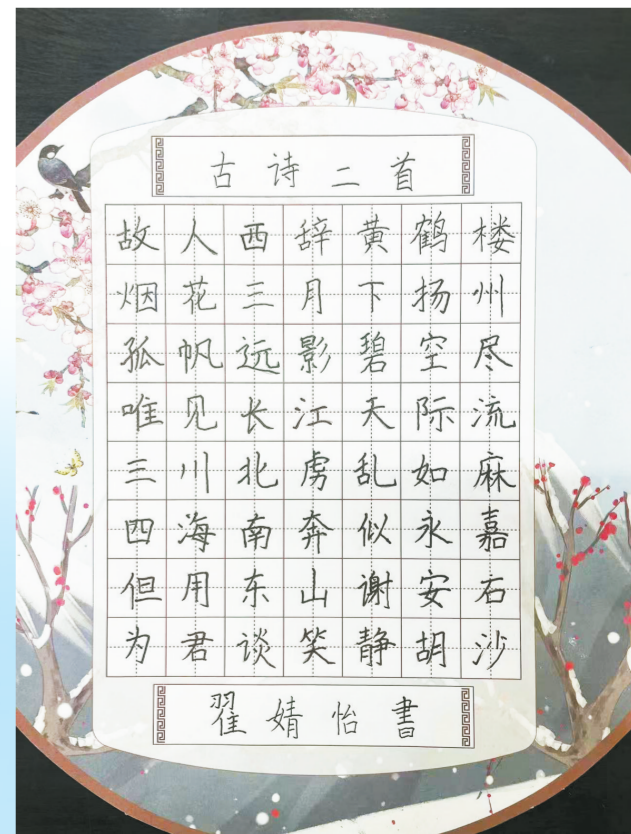 古诗二首
故人西辞黄鹤楼
烟花三月下扬州
孤帆远影碧空尽
唯见长江天际流
三川北虏乱如麻
四海南奔似永嘉
但用东山谢安石
为君谈笑静胡沙
翟婧怡書